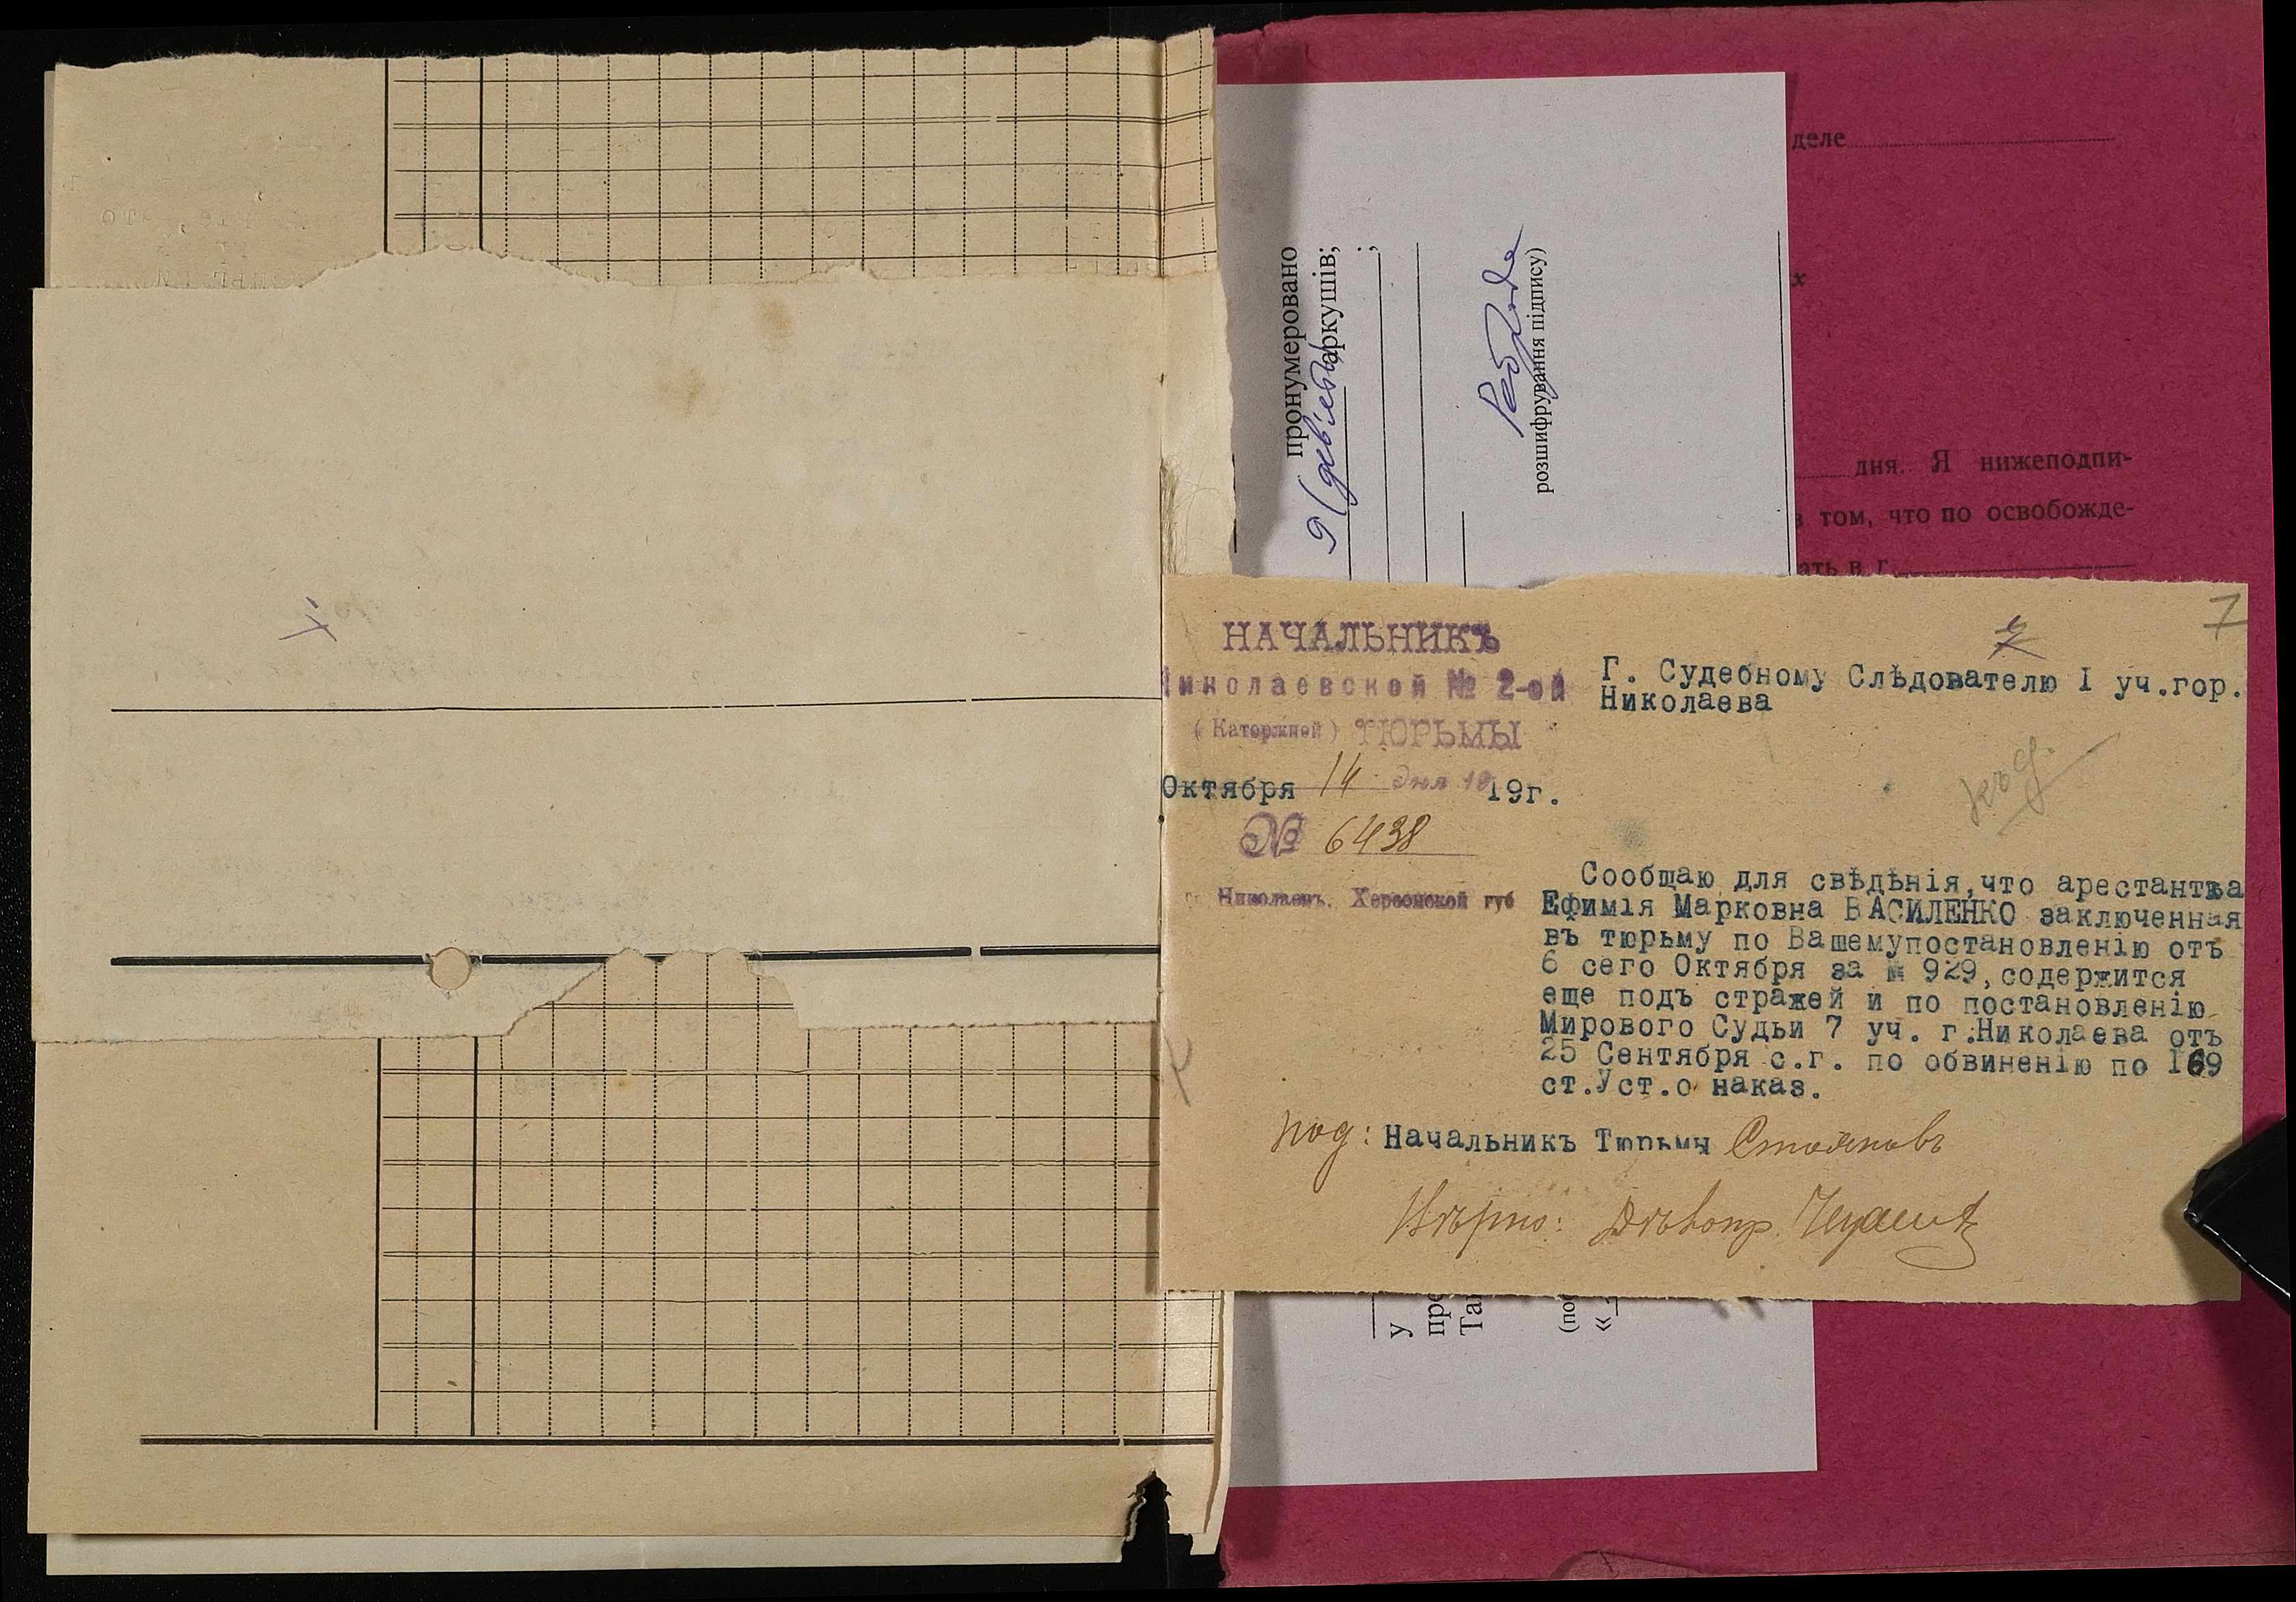 деле
х
дня. Я нижеподпи-
в том, что по освобожде-
ать в г.
пронумеровано
9 (дев'ять) аркушів;
;
розшифрування підпису)
7
НАЧАЛЬНИКЪ
Николаевской № 2-ой
(Каторжной) ТЮРЬМЫ
Октября 14 дня 1919г.
№ 6438
Николаевъ, Херсонской губ
7
Г. Судебному Слѣдователю I уч.гор.
Николаева
къ д.
Сообщаю для свѣдѣнія,что арестантка
Ефимія Марковна ВАСИЛЕНКО заключенная
въ тюрьму по Вашемупостановленію отъ
6 сего Октября за № 929,содержится
еще подъ стражей и по постановленію
Мирового Судьи 7 уч. г.Николаева отъ
25 Сентября с.г. по обвиненію по 169
ст.Уст.о наказ.
под: Начальникъ Тюрьмы Стояновъ
Вѣрно: Дѣлопр.
у
пре
Та
(по
«